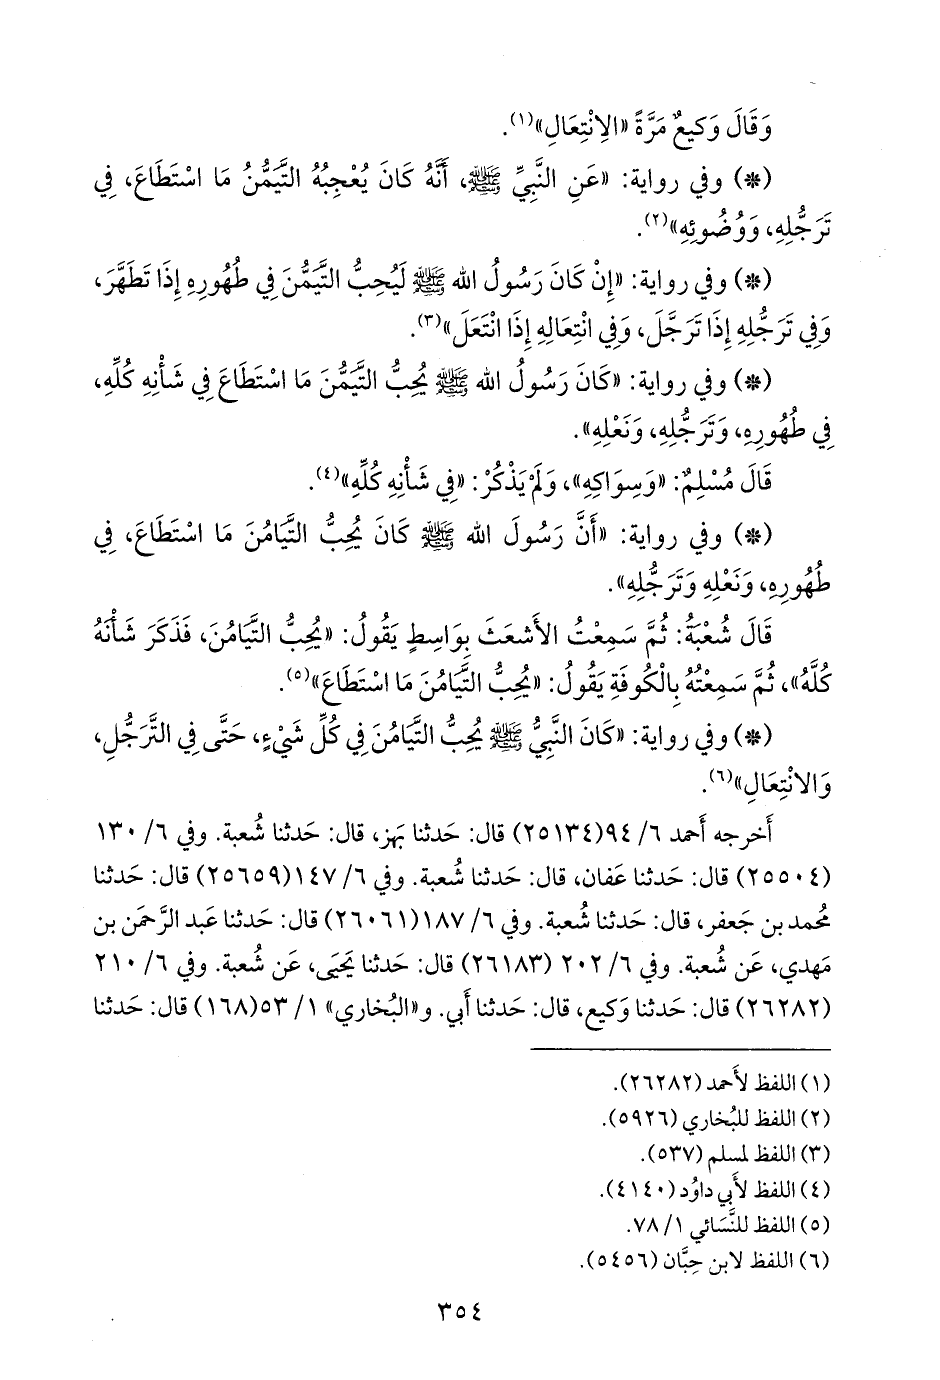 وَقَالَ وَكِيعٌ مَرَّةً «الِانْتِعَالِ»(١).
(*) وفي رواية: «عَنِ النَّبِيِّ ﷺ، أَنَّهُ كَانَ يُعْجِبُهُ التَّيَمُّنُ مَا اسْتَطَاعَ، فِي
تَرَجُّلِهِ، وَوُضُوئِهِ»(٢).
(*) وفي رواية: «إِنْ كَانَ رَسُولُ الله ﷺ لَيُحِبُّ التَّيَمُّنَ فِي طُهُورِهِ إِذَا تَطَهَّرَ،
وَفِي تَرَجُّلِهِ إِذَا تَرَجَّلَ، وَفِي انْتِعَالِهِ إِذَا انْتَعَلَ»(٣).
(*) وفي رواية: «كَانَ رَسُولُ الله ﷺ يُحِبُّ التَّيَمُّنَ مَا اسْتَطَاعَ فِي شَأْنِهِ كُلِّهِ،
فِي طُهُورِهِ، وَتَرَجُّلِهِ، وَنَعْلِهِ».
قَالَ مُسْلِمٌ: «وَسِوَاكِهِ»، وَلَمْ يَذْكُرْ: «فِي شَأْنِهِ كُلِّهِ»(٤).
(*) وفي رواية: «أَنَّ رَسُولَ الله ﷺ كَانَ يُحِبُّ التَّيَامُنَ مَا اسْتَطَاعَ، فِي
طُهُورِهِ، وَنَعْلِهِ وَتَرَجُّلِهِ».
قَالَ شُعْبَةُ: ثُمَّ سَمِعْتُ الأَشعَثَ بِوَاسِطٍ يَقُولُ: «يُحِبُّ التَّيَامُنَ، فَذَكَرَ شَأْنَهُ
كُلَّهُ»، ثُمَّ سَمِعْتُهُ بِالْكُوفَةِ يَقُولُ: «يُحِبُّ التَّيَامُنَ مَا اسْتَطَاعَ»(٥).
(*) وفي رواية: «كَانَ النَّبِيُّ ﷺ يُحِبُّ التَّيَامُنَ فِي كُلِّ شَيْءٍ، حَتَّى فِي التَّرَجُّلِ،
وَالانْتِعَالِ»(٦).
أَخرجه أَحمد ٦/ ٩٤(٢٥١٣٤) قال: حَدثنا بَهز، قال: حَدثنا شُعبة. وفي ٦/ ١٣٠
(٢٥٥٠٤) قال: حَدثنا عَفان، قال: حَدثنا شُعبة. وفي ٦/ ١٤٧(٢٥٦٥٩) قال: حَدثنا
مُحمد بن جَعفر، قال: حَدثنا شُعبة. وفي ٦/ ١٨٧(٢٦٠٦١) قال: حَدثنا عَبد الرَّحمَن بن
مَهدي، عَن شُعبة. وفي ٦/ ٢٠٢ (٢٦١٨٣) قال: حَدثنا يَحيَى، عَن شُعبة. وفي ٦/ ٢١٠
(٢٦٢٨٢) قال: حَدثنا وَكيع، قال: حَدثنا أَبي. و«البُخاري» ١/ ٥٣(١٦٨) قال: حَدثنا
(١) اللفظ لأَحمد (٢٦٢٨٢).
(٢) اللفظ للبُخاري (٥٩٢٦).
(٣) اللفظ لمسلم (٥٣٧).
(٤) اللفظ لأَبي داوُد (٤١٤٠).
(٥) اللفظ للنَّسَائي ١/ ٧٨.
(٦) اللفظ لابن حِبَّان (٥٤٥٦).
٣٥٤